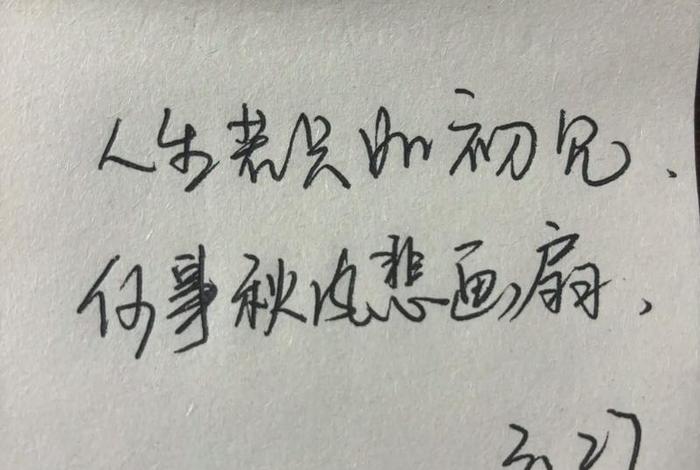 人生若只如初见.
何事秋风悲画扇、
3.27